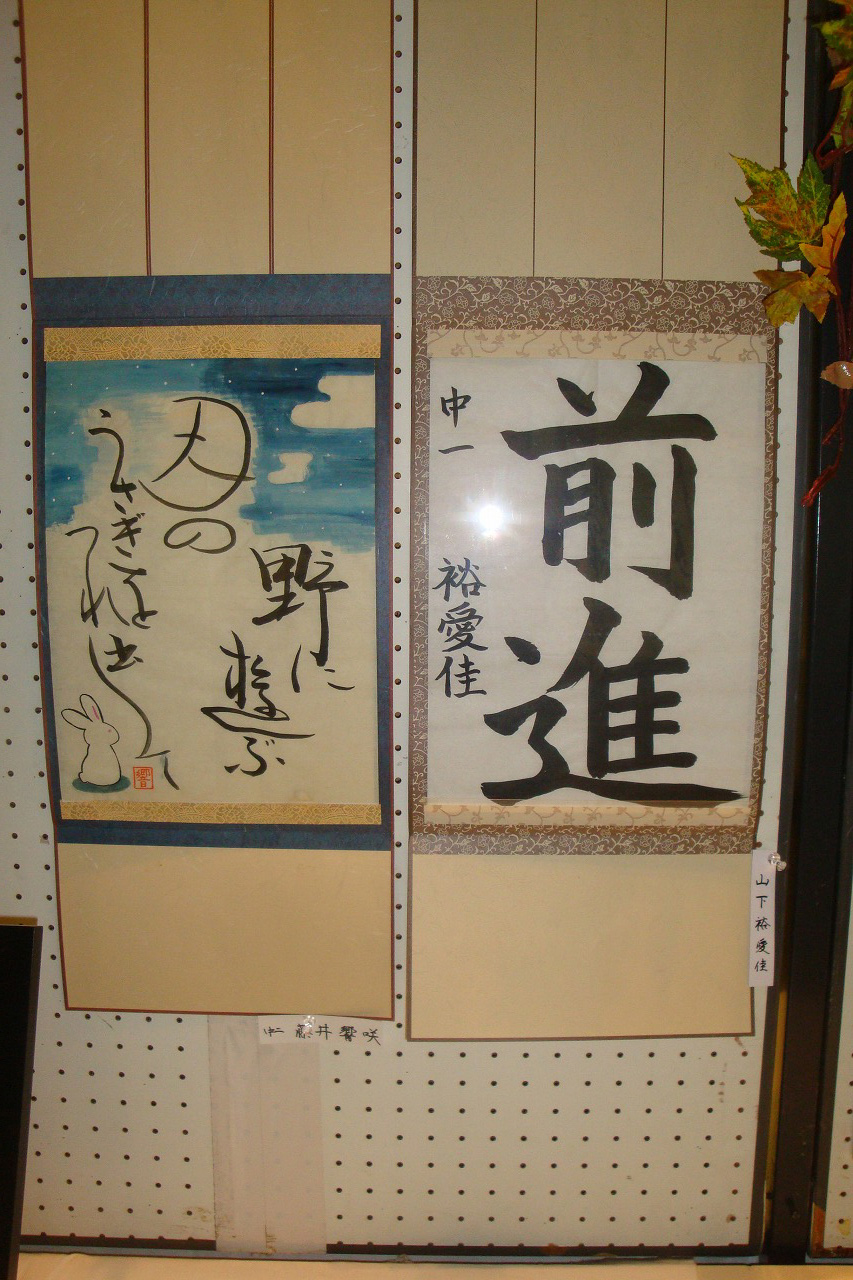 前進
中一 裕愛佳
山下裕愛佳
野に
遊ぶ
月の
うさぎを
つれ出して
響
中二 藤井響咲